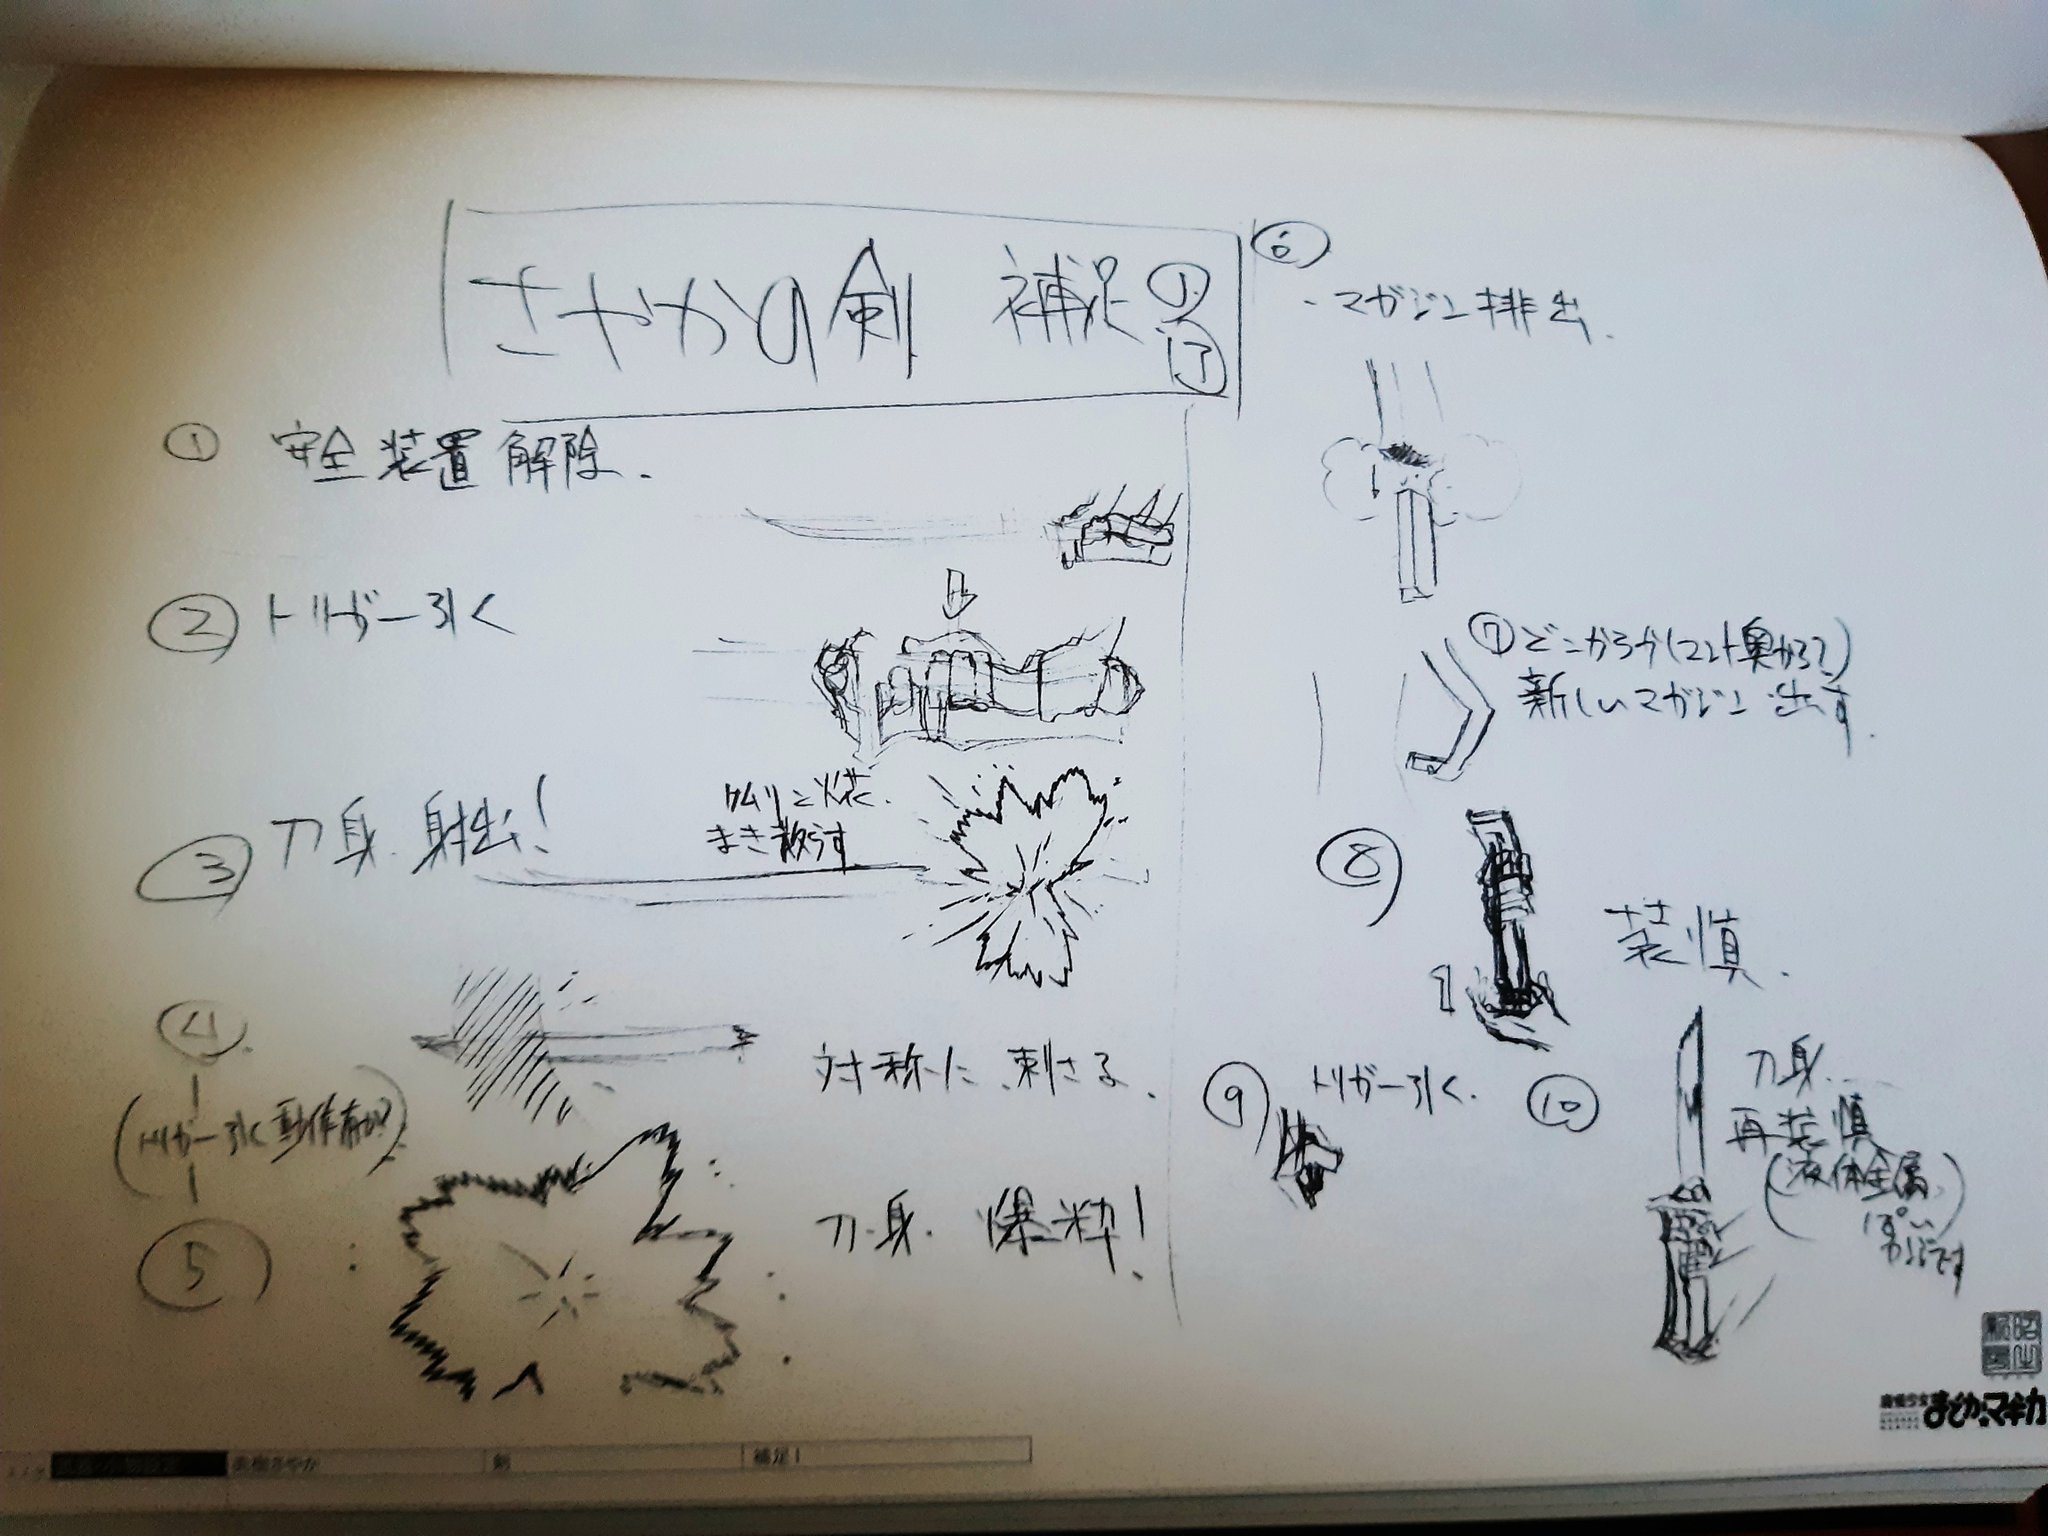 さやかの剣 補足①
① 安全装置解除.
② トリガー引く
③ 刀身.射出!
ケムリと火花.
まき散らす
④
対称に.刺さる.
(トリガー引く動作有か?)
⑤
刀身.爆粋!
⑥
・マガジン排出.
⑦どこからか(マント奥から?)
新しいマガジン出す.
⑧
装慎.
⑨ トリガー引く.
⑩ 刀身.
再装慎
(液体金属
ぽい
かんじです)
まどか☆マギカ
美樹さやか 剣 補足1